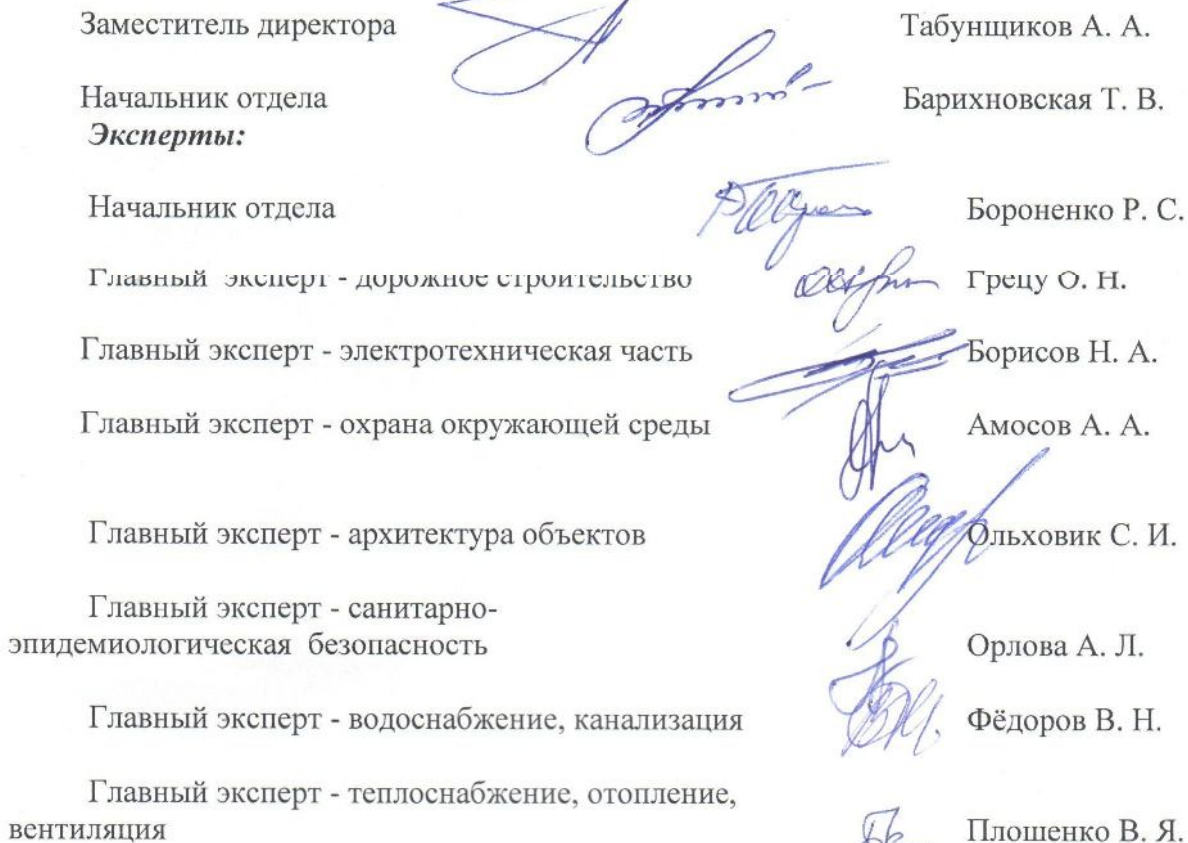 Заместитель директора Табунщиков А. А.
Начальник отдела Барихновская Т. В.
Эксперты:
Начальник отдела Бороненко Р. С.
Главный эксперт - дорожное строительство Грецу О. Н.
Главный эксперт - электротехническая часть Борисов Н. А.
Главный эксперт - охрана окружающей среды Амосов А. А.
Главный эксперт - архитектура объектов Ольховик С. И.
Главный эксперт - санитарно-
эпидемиологическая безопасность Орлова А. Л.
Главный эксперт - водоснабжение, канализация Фёдоров В. Н.
Главный эксперт - теплоснабжение, отопление,
вентиляция Плошенко В. Я.